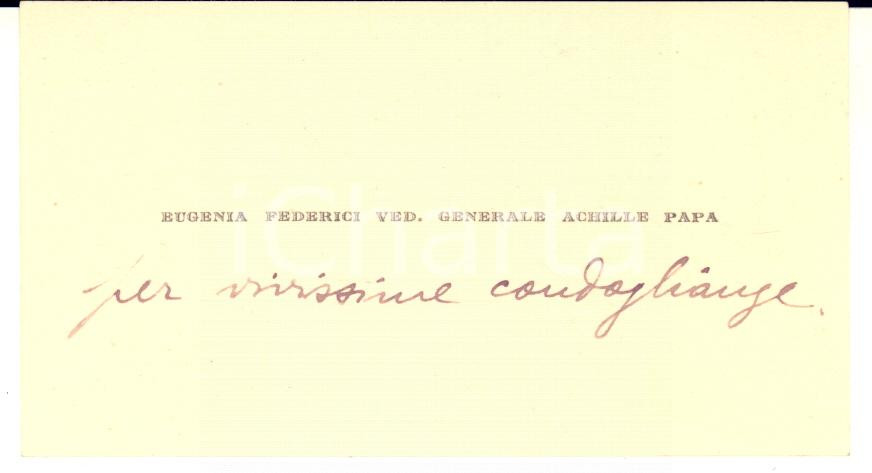 EUGENIA FEDERICI VED. GENERALE ACHILLE PAPA
iCharta
per vivissime condoglianze.